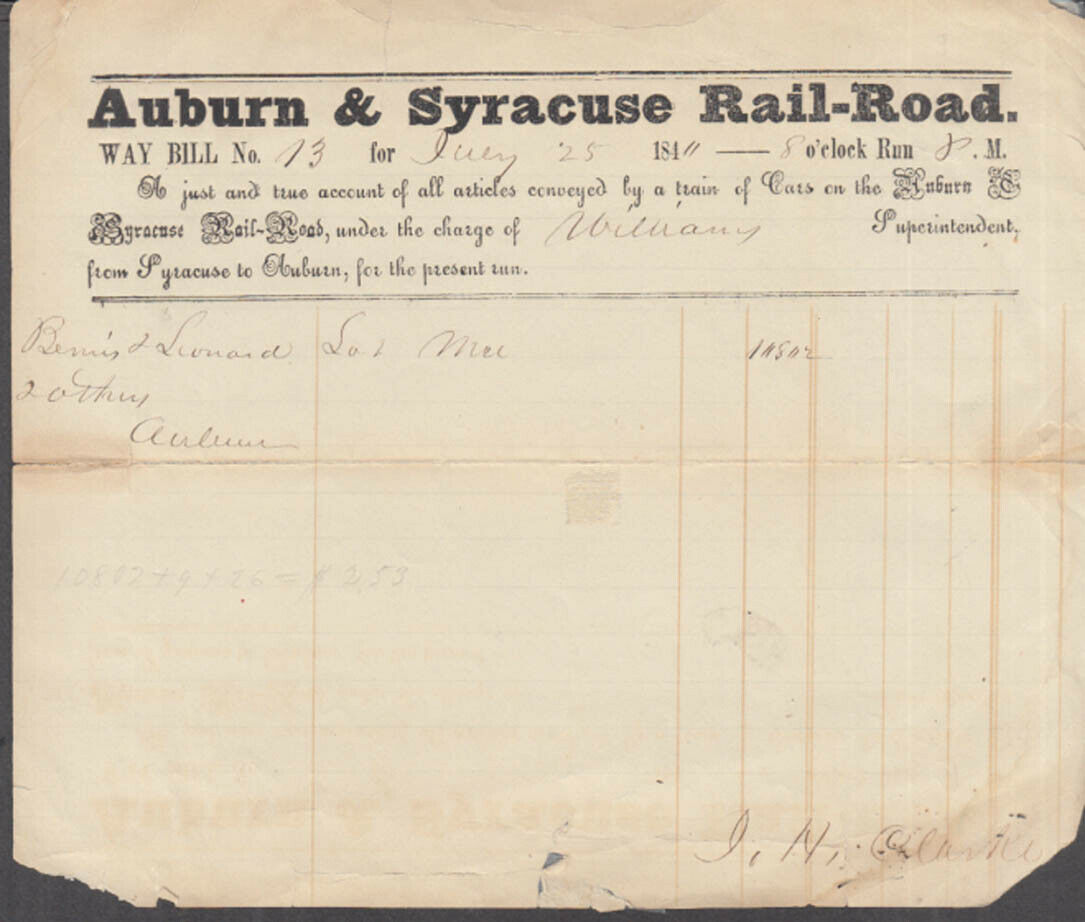 Auburn & Syracuse Rail-Road.
WAY BILL No. 13 for July 25 184 — 8 o'clock Run P. M.
A just and true account of all articles conveyed by a train of Cars on the Auburn &
Syracuse Rail-Road, under the charge of Williams Superintendent,
from Syracuse to Auburn, for the present run.
Bemis & Leonard Lot
& others
Auburn
10802 + 9 + 26 = $ 2,53
J. H. Clarke